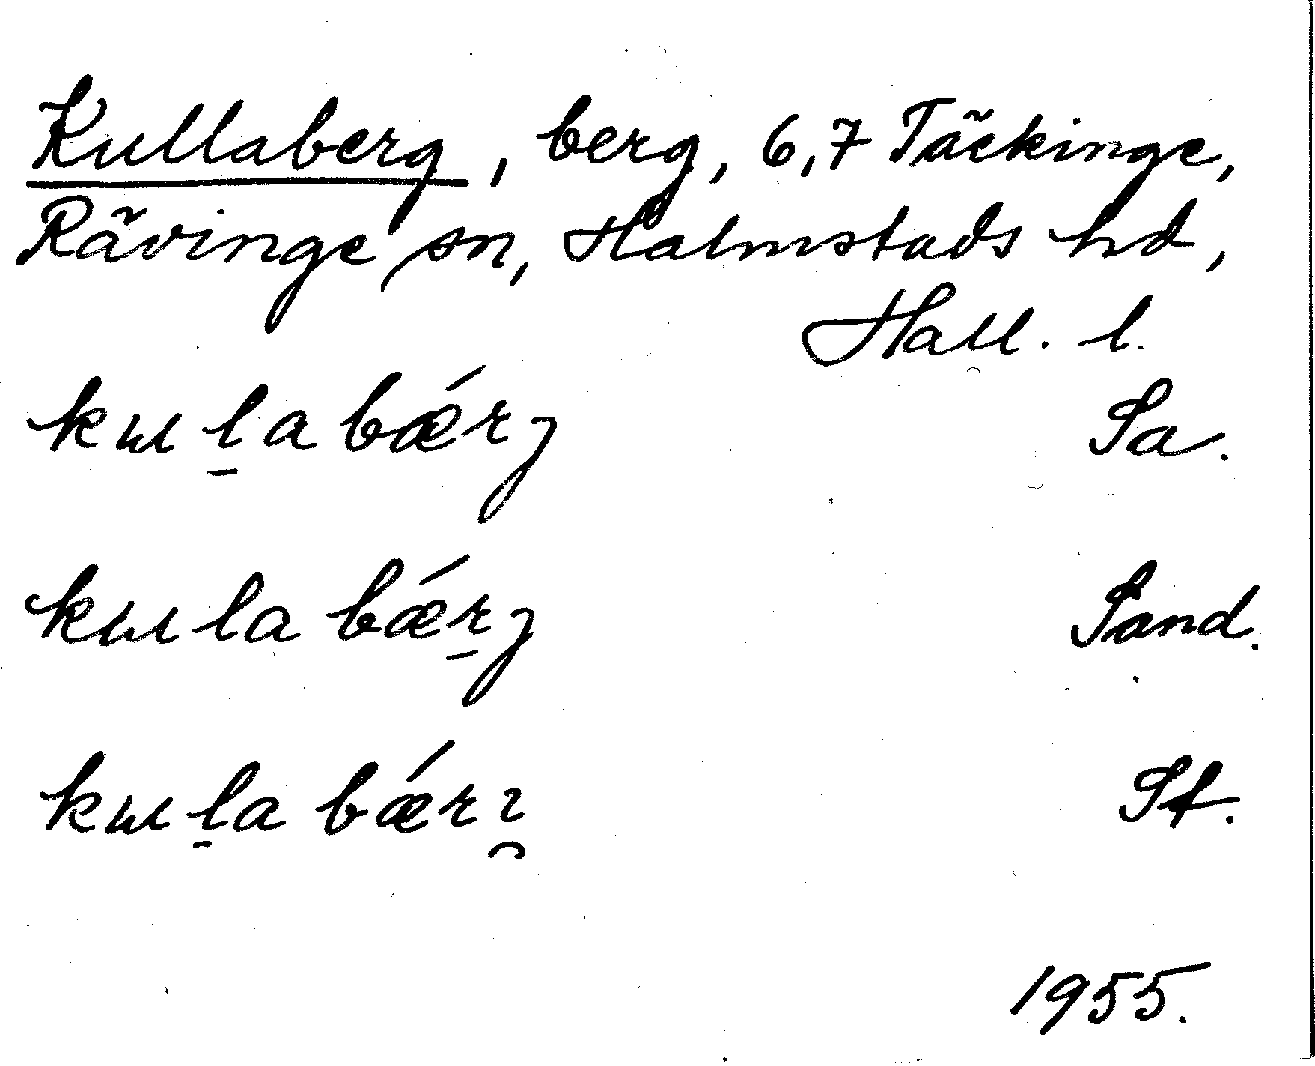 Kullaberg, berg, 6,7 Täckinge,
Rävinge sn, Halmstads hd,
Hall. l.
kɯl̠abǽrȷ Sa.
kɯlabǽr̠ȷ Sand.
kɯl̠abǽrı̯ St.
1955.